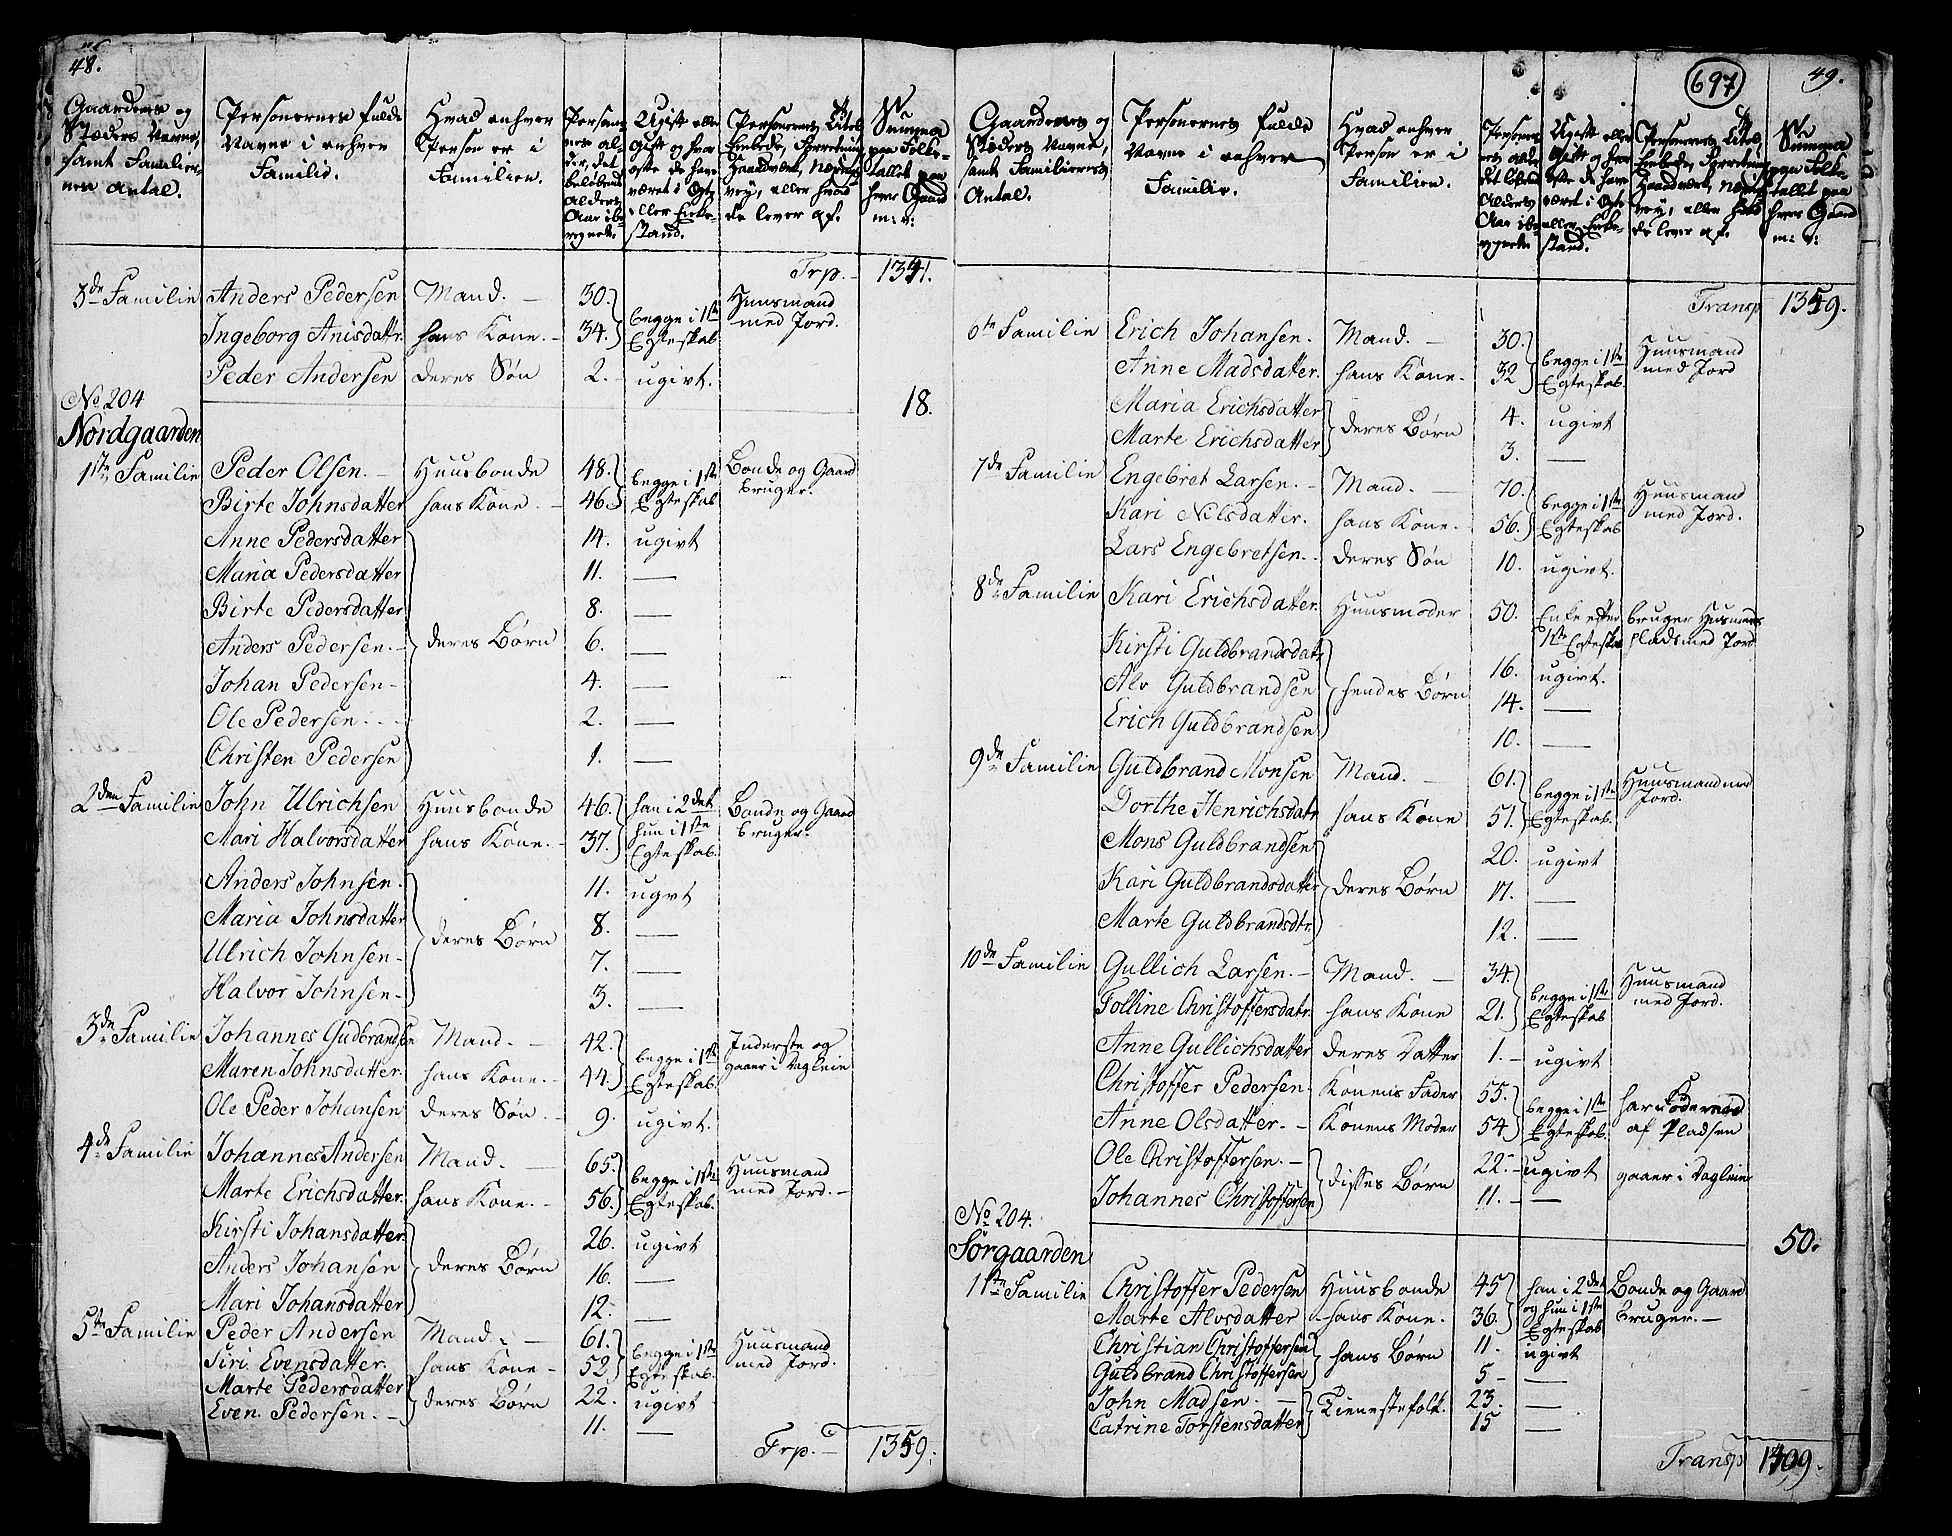 48.
Gaardenes og Stæders Navne, samt Familiernes Antal.
Personernes fulde Navne i enhver Familie.
Hvad enhver Person er i Familien.
Personernes alder, det beløbende Alders Aar iberegnet.
Ugift eller gift og hvor ofte de have været i Egte- eller Enkestand.
Personernes Titel, Embede, Forretning, Haandverk, Næringsvey, eller hvad de lever af.
Summa paa Folketallet paa hver Gaard m: v:
Trp. 1341.
3de Familie Anders Pedersen Mand. 30. begge i 1ste Egteskab Huusmand med Jord.
Ingeborg Anisdattr. hans Kone. 34.
Peder Andersen deres Søn 2. ugivt.
18.
No 204
Nordgaarden
1ste Familie Peder Olsen. Huusbonde 48. begge i 1ste Egteskab Bonde og Gaardbruger.
Birte Johnsdatter hans Kone. 46.
Anne Pedersdatter deres Børn 14. ugivt
Maria Pedersdatter 11. —
Birte Pedersdatter 8. —
Anders Pedersen. 6. —
Johan Pedersen 4. —
Ole Pedersen 2. —
Christen Pedersen 1. —
2den Familie John Ulrichsen Huusbonde 46. han i 2det hun i 1ste Egteskab. Bonde og Gaardbruger.
Mari Halvorsdatter hans Kone. 37.
Anders Johnsen. deres Børn 11. ugvt
Maria Johnsdatter 8. —
Ulrich Johnsen 7. —
Halvor Johnsen 3. —
3de Familie Johannes Gudbrandsen Mand. 42. begge i 1ste Egteskab. Inderste og gaaer i Dagleie
Maren Johnsdatter hans Kone. 44.
Ole Peder Johansen deres Søn. 9. ugivt.
4de Familie Johannes Andersen Mand. 65. begge i 1ste Egteskab. Huusmand med Jord.
Marte Erichsdatter hans Kone. 56.
Kirsti Johansdatter deres Børn 26. ugivt
Anders Johansen 16. —
Mari Johansdatter 12. —
5te Familie Peder Andersen Mand. 61. begge i 1ste Egteskab. Huusmand med Jord.
Siri Evensdatter. hans Kone 52
Marte Pedersdatter deres Børn 22. ugivt
Even Pedersen. 11. —
Trp. 1359.
697
49.
Gaardenes og Stæders Navne, samt Familiernes Antal.
Personernes fulde Navne i enhver Familie.
Hvad enhver Person er i Familien.
Personernes alder det beløbende Alders Aar iberegnet
Ugift eller gift og hvor ofte de have været i Egte- eller Enkestand.
Personernes Titel, Embede, Forretning, Haandverk, Næringsvey, eller hvad de lever af.
Summa paa Folketallet paa hver Gaard m: v:
Transp 1359.
6te Familie Erich Johansen. Mand. 30. begge i 1ste Egteskab. Huusmand med Jord
Anne Madsdatter. hans Kone. 32
Maria Erichsdatter deres Børn 4. ugivt
Marte Erichsdatter 3. —
7de Familie Engebret Larsen. Mand. 70. begge i 1ste Egteskab Huusmand med Jord.
Kari Nilsdatter. hans Kone. 56.
Lars Engebretsen. deres Søn 10. ugivt.
8de Familie Kari Erichsdatter. Huusmoder 50. Enke efter 1ste Egteskab bruger Husmands plads med Jord
Kirsti Guldbrandsdatr hendes Børn 16. ugivt.
Alv Guldbrandsen 14. —
Erich Guldbrandsen 10. —
9de Familie Guldbrand Monsen Mand. 61. begge i 1ste Egteskab. Huusmand med Jord.
Dorthe Henrichsdatr hans Kone 51.
Mons Guldbrandsen deres Børn 20. ugivt
Kari Guldbrandsdatter 17. —
Marte Guldbrandsdtr. 12. —
10de Familie Gullich Larsen. Mand. 34. begge i 1ste Egteskab Huusmand med Jord.
Tolline Christoffersdatr. hans Kone 21.
Anne Gullichsdatter deres Datter 1. ugivt
Christoffer Pedersen Konens Fader 55. begge i 1ste Egteskab. har Føderaad af Pladsen
Anne Olsdatter. Konens Moder 54.
Ole Christoffersen. disses Børn 22. ugivt gaaer i Dagleie
Johannes Christoffersen 11. —
50.
No 204.
Sörgaarden
1ste Familie Christoffer Pedersen Huusbonde 45 han i 2det og hun i 1ste Egteskab Bonde og Gaardbruger.
Marte Alvsdatter hans Kone. 36.
Christian Christoffersen hans Børn 11. ugivt
Guldbrand Christoffersen 5 —
John Madsen. Tienestefolk. 23. —
Catrine Torstensdatter 15
Transp 1409.